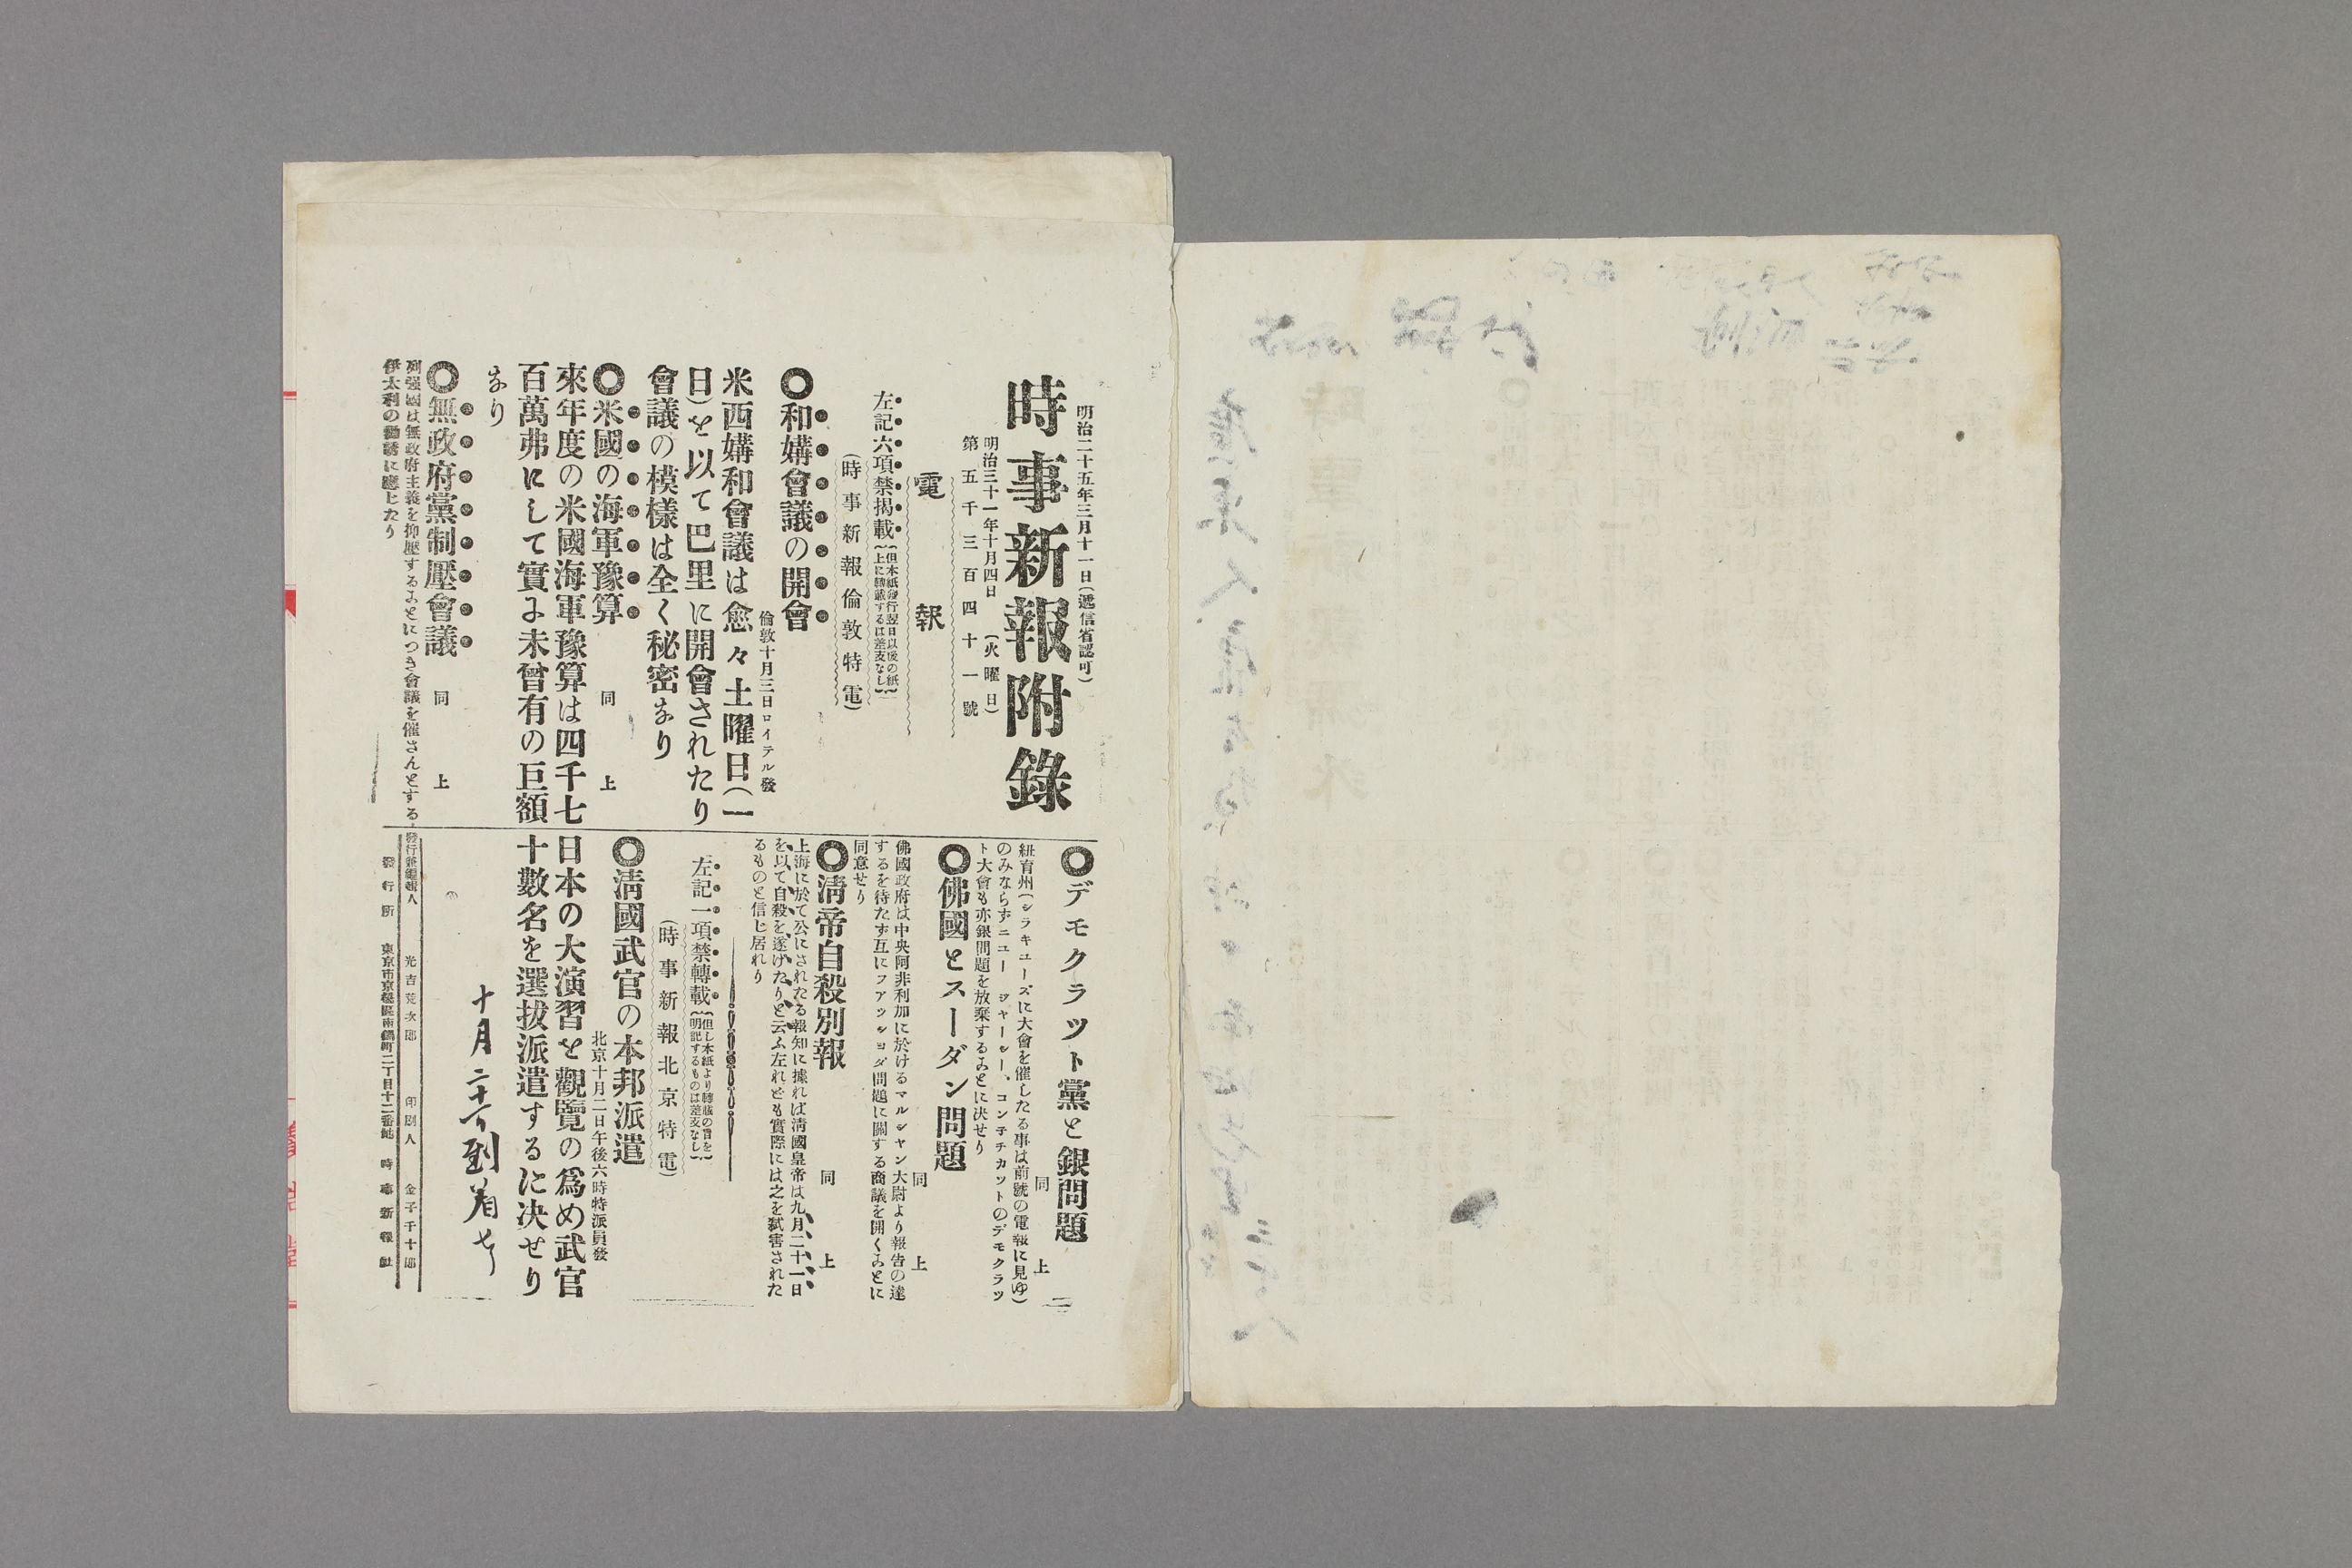 明治二十五年三月十一日(遞信省認可)
時事新報附錄
明治三十一年十月四日　(火曜日)
第五千三百四十一號
電報
左記六項禁揭載
(但本紙發行翌日以後の紙
上に轉載するは差支なし)
(時事新報倫敦特電)
◎和媾會議の開會
倫敦十月三日ロイテル發
米西媾和會議は愈々土曜日(一
日)を以て巴里に開會されたり
會議の模樣は全く秘密なり
◎米國の海軍豫算　同上
來年度の米國海軍豫算は四千七
百萬弗にして實に未曾有の巨額
なり
◎無政府黨制壓會議　同上
列强國は無政府主義を抑壓することにつき會議を催さんとする
伊太利の勸誘に應じたり
◎デモクラット黨と銀問題
同上
紐育州(シラキユーズに大會を催したる事は前號の電報に見ゆ)
のみならずニユー　ジャーシー、コンチチカットのデモクラッ
ト大會も亦銀問題を放棄することに決せり
◎佛國とスーダン問題
同上
佛國政府は中央阿非利加に於けるマルシャン大尉より報告の達
するを待たず互にファッショダ問題に關する商議を開くことに
同意せり
◎淸帝自殺別報　同上
上海に於て公にされたる報知に據れば淸國皇帝は九月二十一日
を以て自殺を遂げたりと云ふ左れども實際には之を弑害された
るものと信じ居れり
左記一項禁轉載
(但し本紙より轉載の旨を
明記するものは差支なし)
(時事新報北京特電)
◎淸國武官の本邦派遣
北京十月二日午後六時特派員發
日本の大演習を觀覽の爲め武官
十數名を選拔派遣するに決せり
十月二十八日到着
發行兼編輯人　光吉荒次郎　印刷人　金子千十郎
發行所　東京市京橋區南鍋町二丁目十二番地　時事新報社